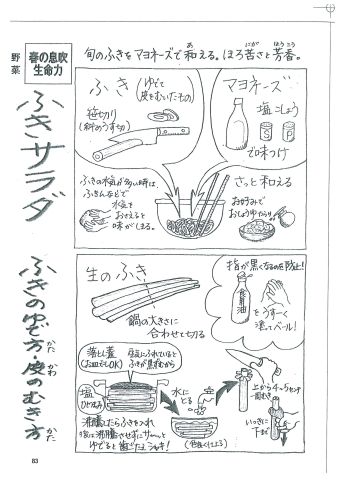 野菜
春の息吹
生命力
ふきサラダ
ふきのゆで方・皮のむき方
かた
かわ
かた
旬のふきをマヨネーズで和える。ほろ苦さと芳香。
あ
にが
ほうこう
ふき
(ゆでて
皮をむいたもの)
笹切り
(斜めうす切り)
マヨネーズ
塩こしょう
S
P
で味つけ
ふきの水気が多い時は、
ふきんなどで
水気を
おさえると
味がしまる。
さっと和える
お好みで
おしょうゆかつぶし
生のふき
鍋の大きさに
合わせて切る
指が黒くなるのを防止!
食用油
をうすく
塗ってベール!
落とし蓋
(お皿でもOK)
空気にふれていると
ふきが黒ずむから
塩
ひとつまみ
水に
とる
沸騰したらふきを入れ
ゆでると歯ごたえシャキ!
(色よくしよう)
上から4~5センチ
一周むき
いっきに
下まで
83